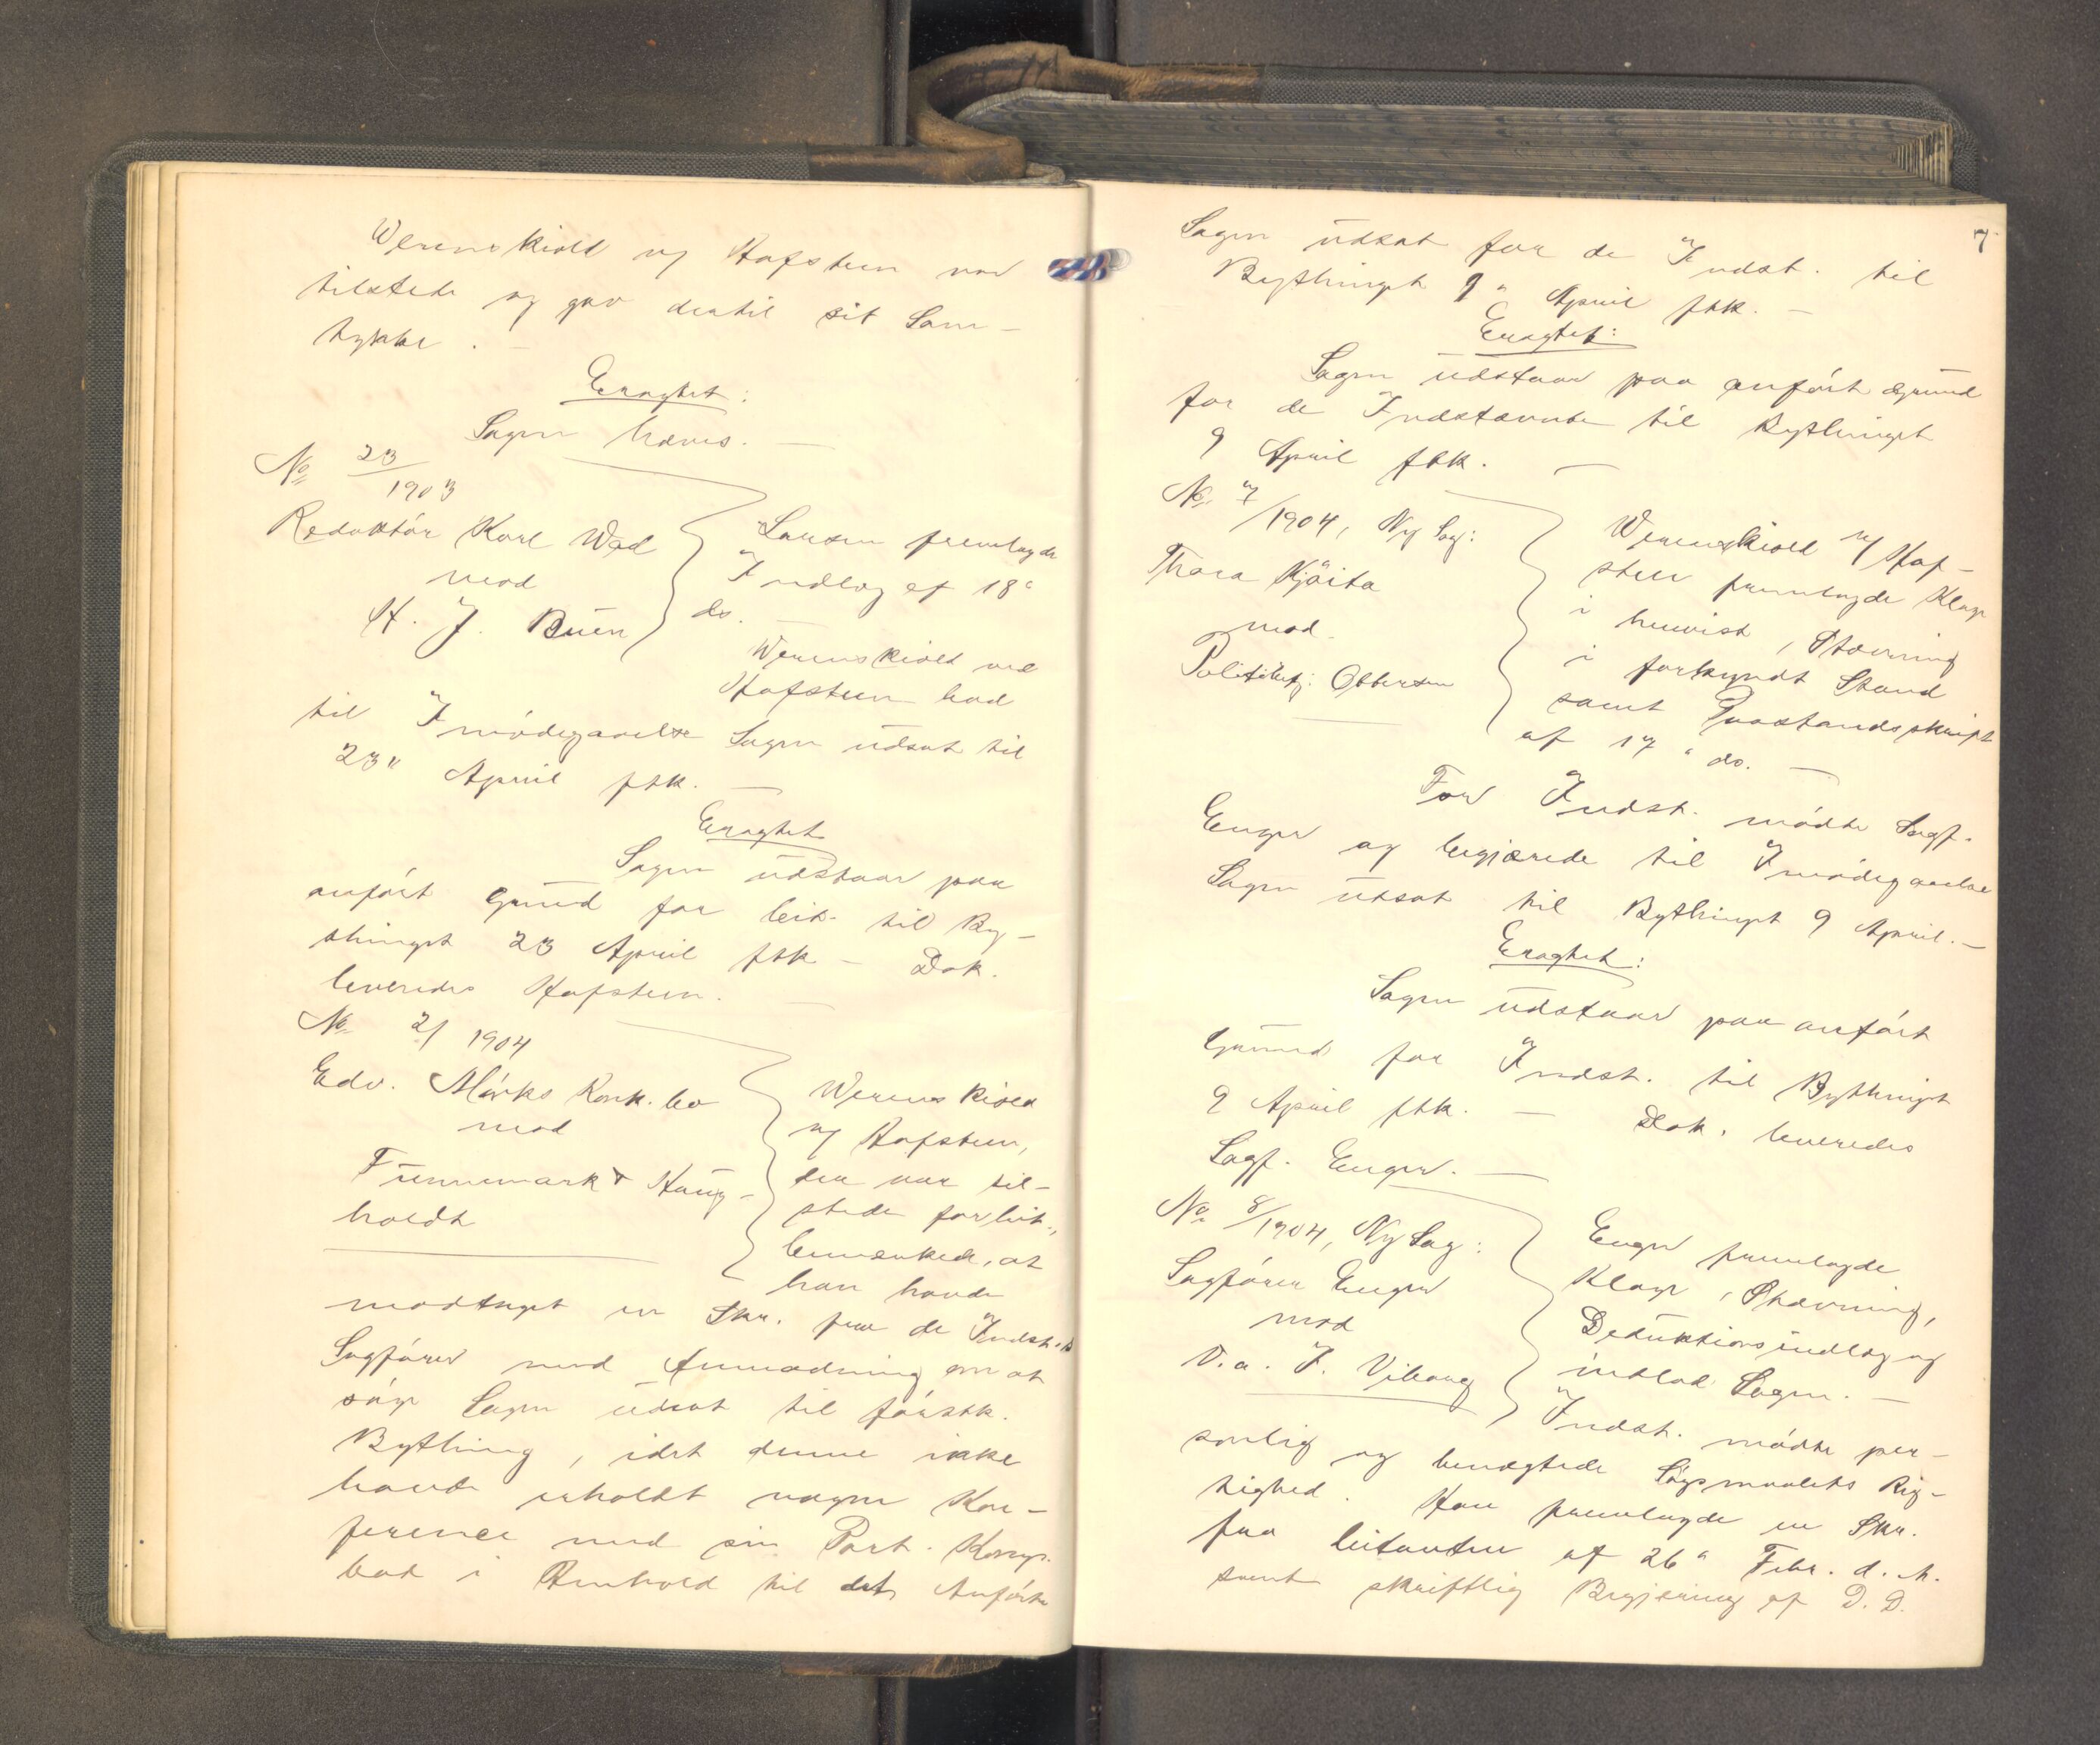 Werenskiold v/ Hofsteen var
tilstede og gav dertil sit Sam-
tykke. -
Eragtet:
Sagen hæves. -
No 23/1903
Redaktør Karl Wad
mod
H. J. Buen
Larsen fremlagde
Indlæg af 18de
ds.
Werenskiold ved
Hofsteen bad
til Imødegaaelse Sagen udsat til
23de April førstk. -
Eragtet
Sagen udstaar paa
anført Grund for Citk. til By-
thinget 23 April førstk. - Dok.
leveredes Hofsteen. -
No 2/1904
Edv. Mørks Konk.bo
mod
Funnemark & Haug-
holdt
Werenskiold
v/ Hofsteen,
der var til-
stede for Cit.,
bemærkede, at
han havde
modtaget en Skr. fra de Indst.s
Sagfører med Anmodning om at
søge Sagen udsat til førstk.
Bything, idet denne ikke
havde erholdt nogen Kon-
ference med sin Part. Komp.
bad i Henhold til det Anførte
7
Sagen udsat for de Indst. til
Bythinget 9de April førstk. -
Eragtet:
Sagen udstaar paa anført Grund
for de Indstævnte til Bythinget
9 April førstk. -
No. 7/1904, Ny Sag:
Thora Kjøita
mod
Politibetj: Obbersen
Werenskiold v/ Hof-
steen fremlagde Klage
i henvist, Stævning
i forkyndt Stand
samt Paastandsskrift
af 17de ds. -
For Indst. mødte Sagf.
Enger og begjærede til Imødegaaelse
Sagen udsat til Bythinget 9 April. -
Eragtet:
Sagen udstaar paa anført
Grund for Indst. til Bythinget
9 April førstk. - Dok. leveredes
Sagf. Enger. -
No. 8/1904, Ny Sag:
Sagfører Enger
mod
V. a. F. Viborg
Enger fremlagde
Klage, Stævning,
Deduktionsindlæg og
indlod Sagen. -
Indst. mødte per-
sonlig og benægtede Søgsmaalets Rig-
tighed. Han fremlagde en Skr.
fra Citanten af 26de Febr. d. A.
samt skriftlig Begjæring af D. D.